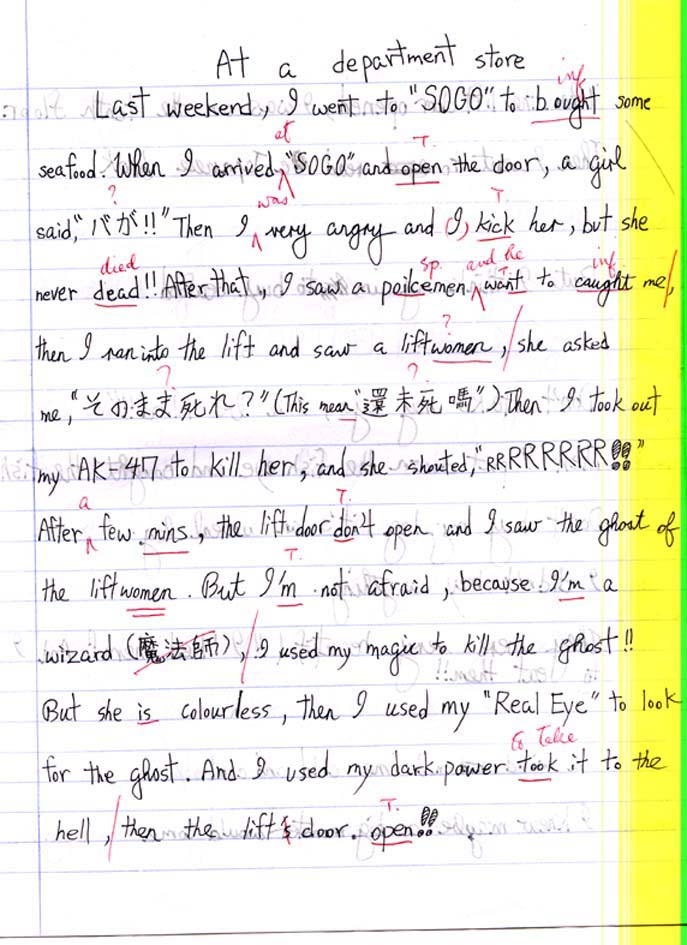 At a department store
inf
Last weekend, I went to "SOGO" to bought some
at T.
seafood. When I arrived "SOGO" and open the door, a girl
? was T.
said, "バガ!!" Then I very angry and I, kick her, but she
died sp. and he inf
never dead!! After that, I saw a poilcemen want to caught me,
?
then I ran into the lift and saw a liftwomen, she asked
? ?
me, "そのまま死れ?" (This mean "還未死嗎") Then I took out
my AK-47 to kill her, and she shouted, "RRRRRRRR!!"
a T.
After few mins, the lift door don't open and I saw the ghost of
T.
the liftwomen. But I'm not afraid, because I'm a
wizard (魔法師), I used my magic to kill the ghost!!
But she is colourless, then I used my "Real Eye" to look
to take
for the ghost. And I used my dark power took it to the
T.
hell, then the lift's door open!!